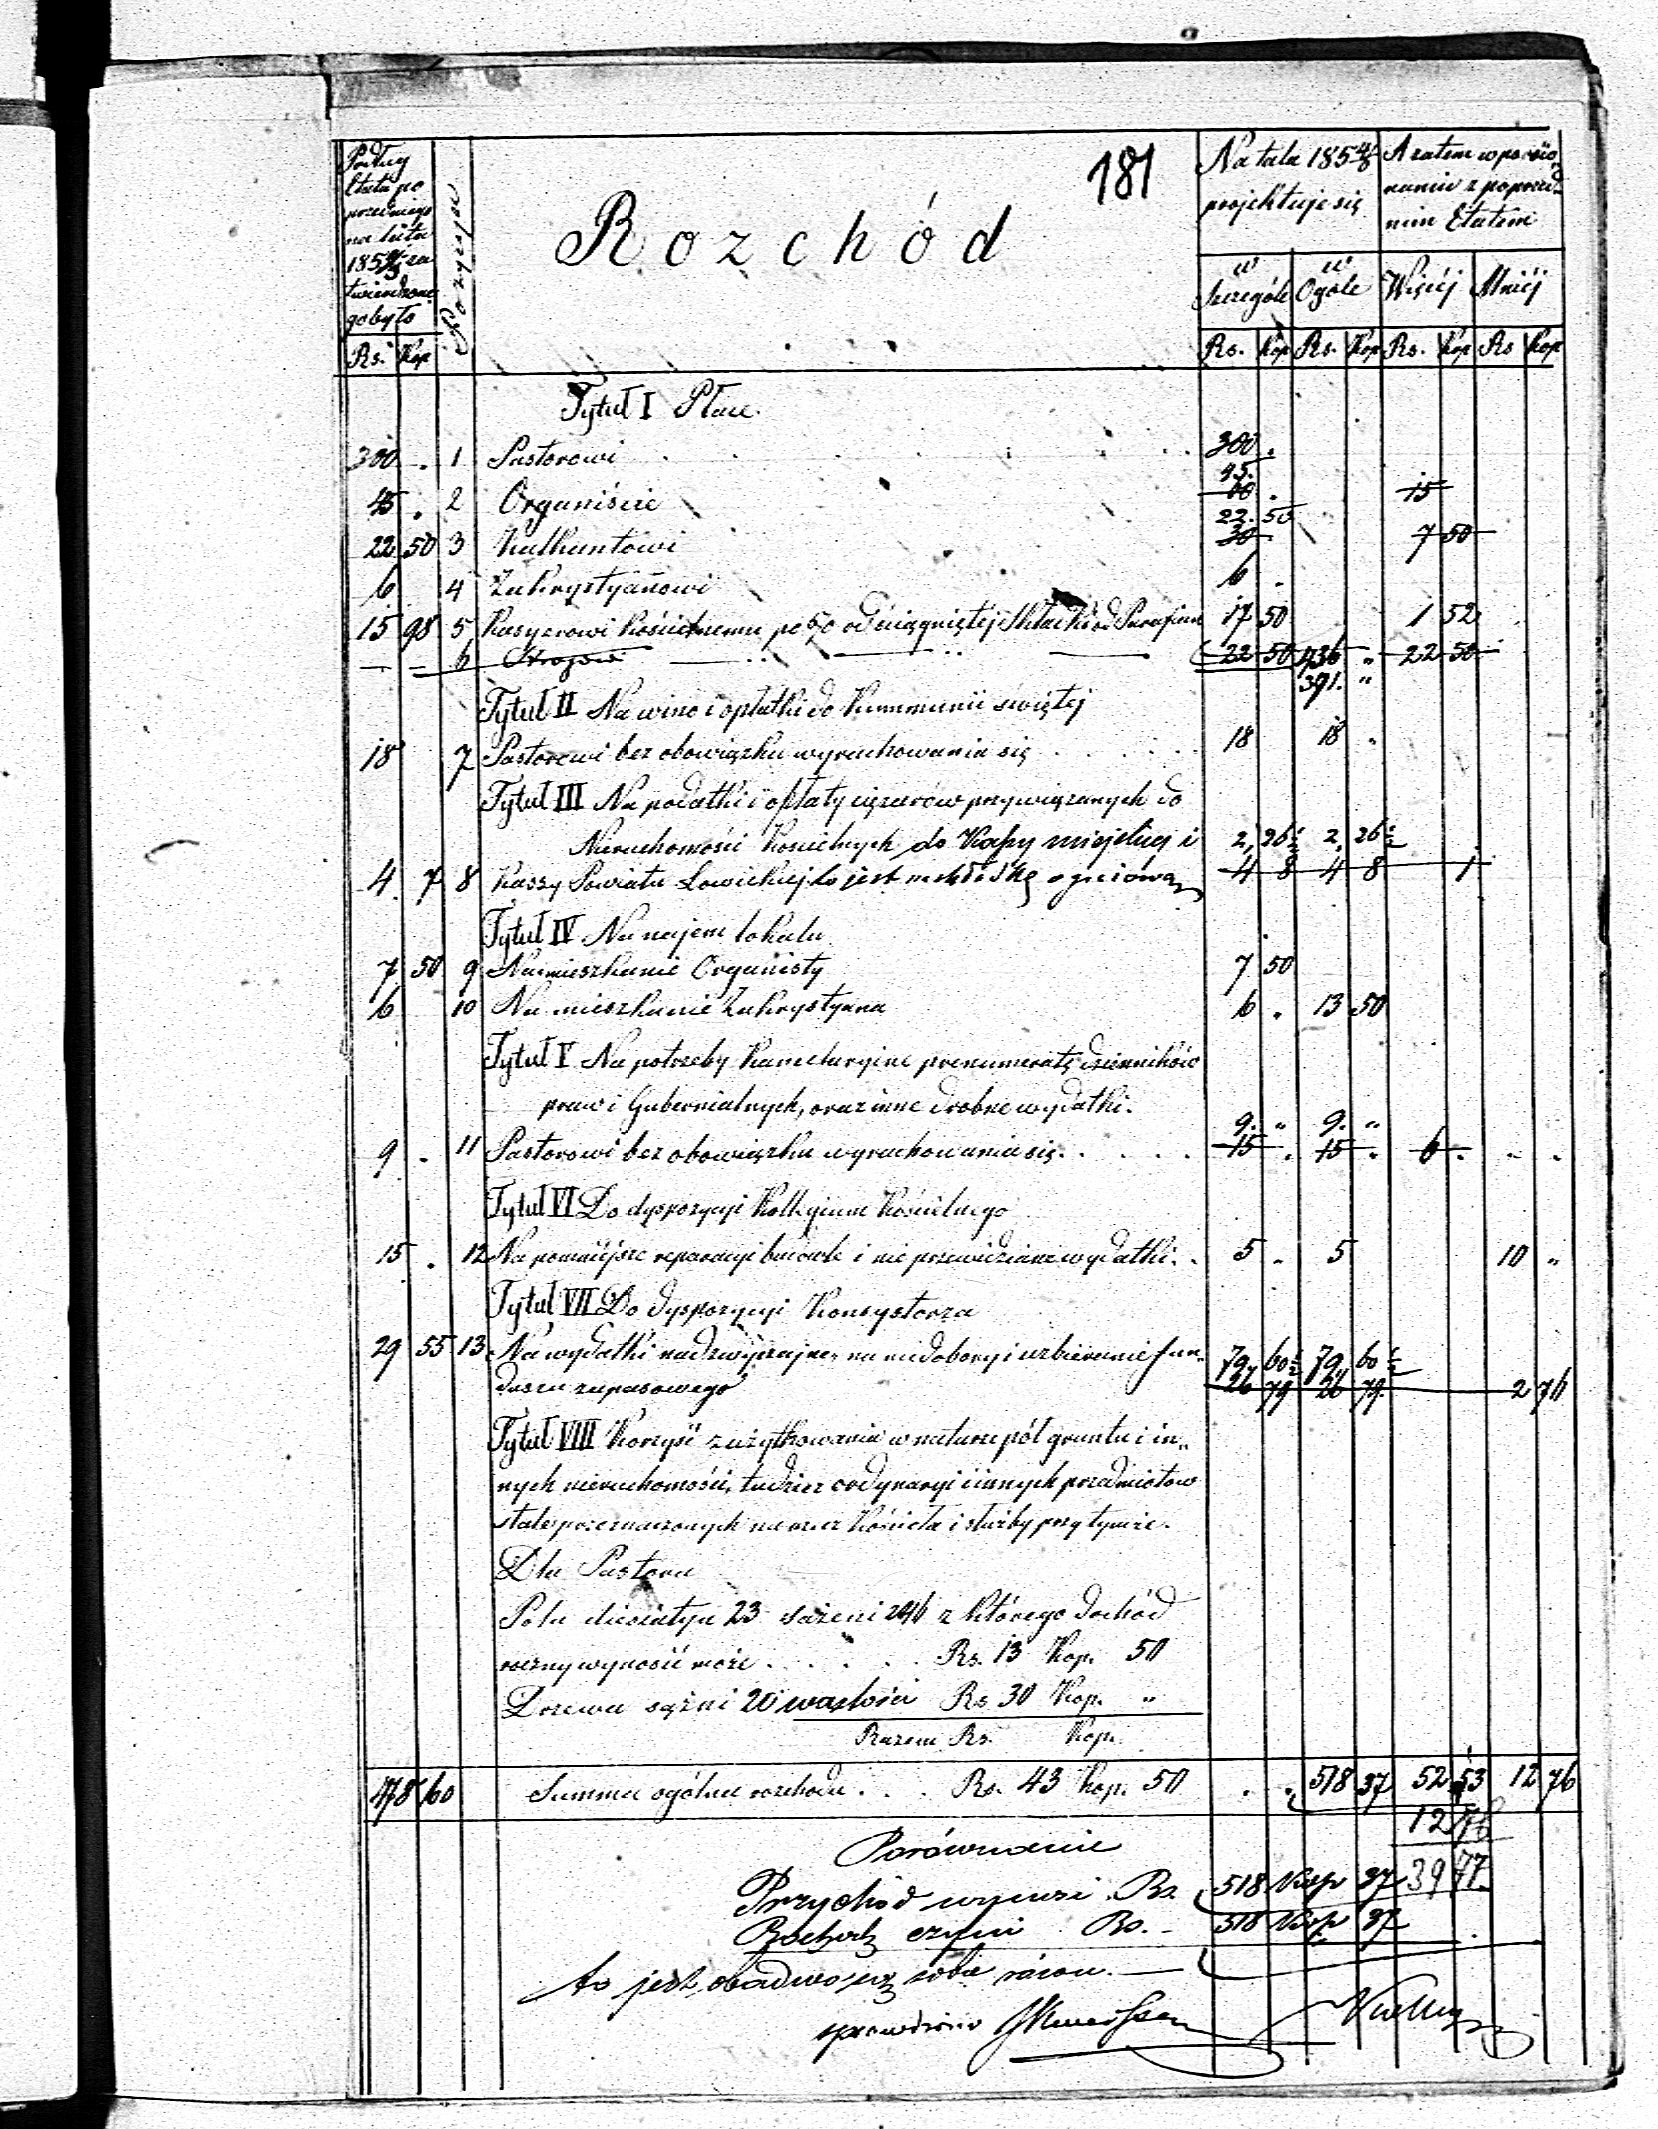 181
Podług Etatu po
przedniego
na lata
185 za
twierdzone
go było
Rs. Kop
Pozycya
Rozchód
Na lata 185 projektuje się
w Szczególe w Ogóle
Rs. Kop Rs. Kop
A zatem w porów
naniu z poprzed
nim Etatem
Więcéj Mniéj
Rs. Kop Rs Kop
Tytuł I Płace.
300 . 1 Pastorowi 300 .
45 . 2 Organiście 45. 60 . 15
22 50 3 Kalkantowi 22. 50 30 7 50
6 4 Zakrystyanowi 6 .
15 98 5 Kasyerowi Kościelnemu po od ściągniętej Składki od Parafian 17 50 1 52
— — 6 Strojowi 22 50 436 " 22 50
391. "
Tytuł II Na wino i opłatki do Kommunii świętej
18 7 Pastorowi bez obowiązku wyrachowania się 18 18 "
Tytuł III Na podatki i opłaty ciężarów przywiązanych do
Nieruchomości Kościelnych do Kassy miejskiej i 2, 26½ 2, 26½
4 7 8 Kassy Powiatu Łowickiej to jest składkę ogniową 4 8 4 8 1
Tytuł IV Na najem lokalu
7 50 9 Na mieszkanie Organisty 7 50
6 10 Na mieszkanie Zakrystyana 6 . 13 50
Tytuł V Na potrzeby Kancelaryjne prenumeratę dzienników
praw i Gubernialnych, oraz inne drobne wydatki. 9. " 9. "
9 . 11 Pastorowi bez obowiązku wyrachowania się 15 . 15 . 6 . - .
Tytuł VI Do dyspozycyi Kollegium Kościelnego
15 . 12 Na pomniejsze reparacyi budowle i nie przewidziane wydatki 5 . 5 10 "
Tytuł VII Do dyspozycyi Konsystorza
29 55 13 Na wydatki nadzwyczajne, na niedobory i uzbieranie fun-
duszu zapasowego 79, 60½ 79, 60½
26 79 26 79 2 76
Tytuł VIII Korzyść z użytkowania w naturze pól gruntu i in-
nych nieruchomości, tudzież ordynaryi i innych przedmiotów
stale przeznaczonych na rzecz Kościoła i służby przy tymże.
Dla Pastora
Pola dziesiatyn 23 sażeni 246 z którego dochód
roczny wynosić może . . . . . Rs. 13 Kop. 50
Drzewa sążni 20 wartości Rs 30 Kop. "
Razem Rs. Kop.
478 60 Summa ogólna rozchodu . . . Rs. 43 Kop. 50 . . 518 37 52 53 12 76
12 76
Porównanie
Przychód wynosi Rs. 518 Kop 37 39 77
Rozchód czyni Rs. 518 Kop 37
to jest obadwa są sobie równe.
sprawdził